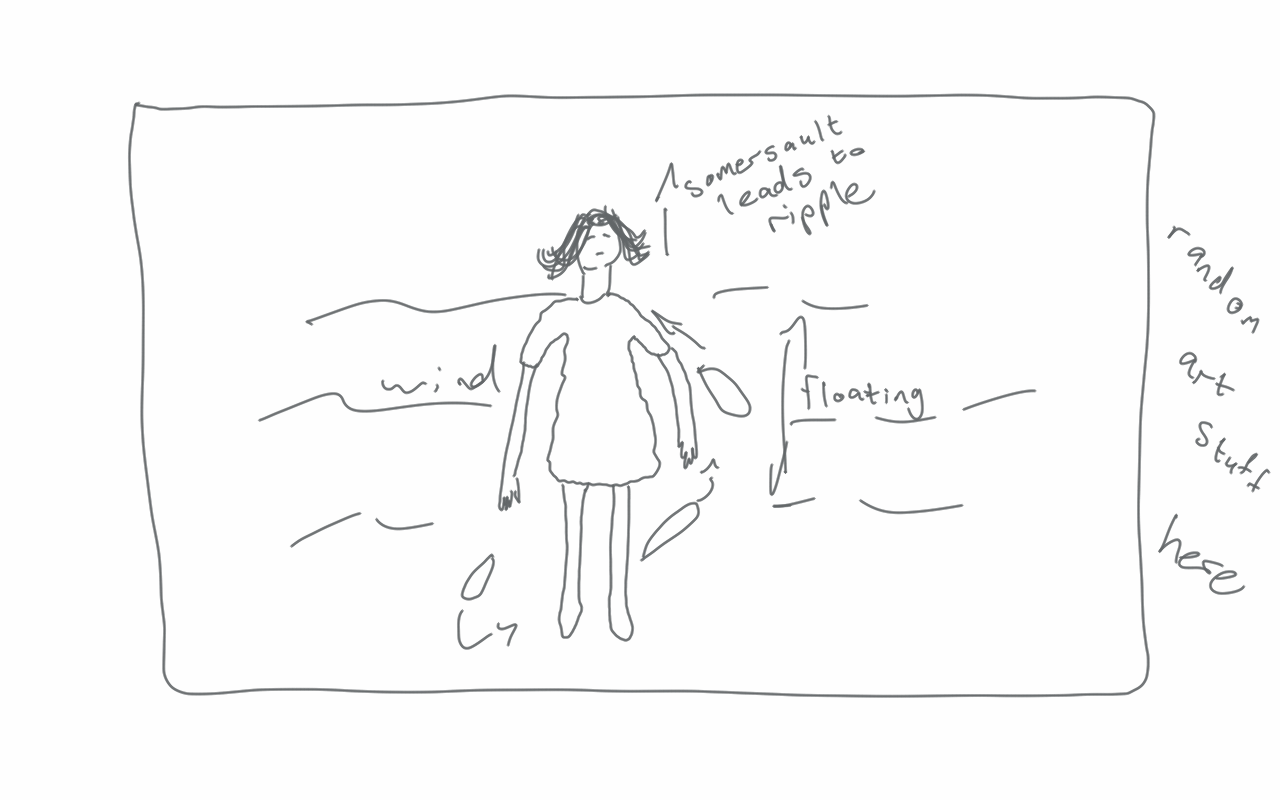 somersault
leads to
ripple
wind
floating
random
art
stuff
here